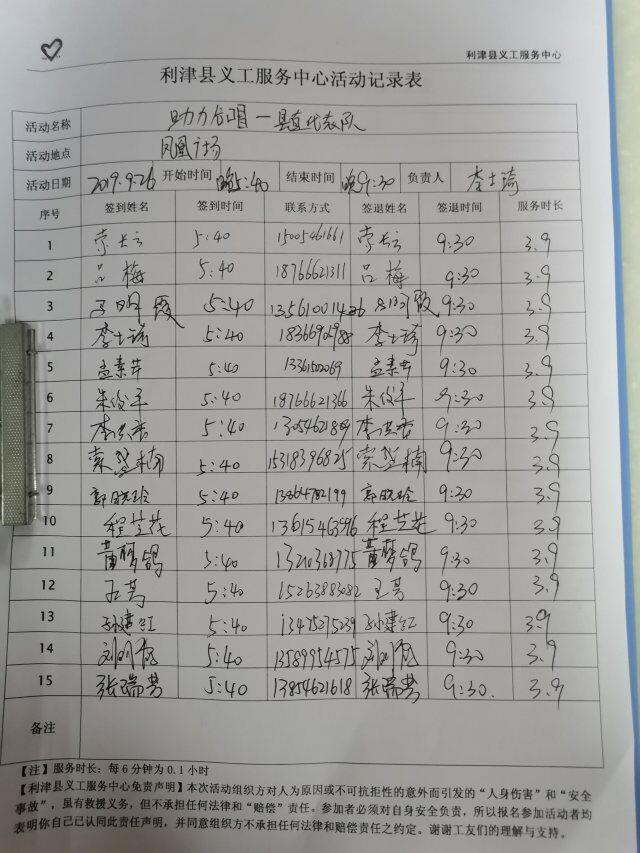 利津县义工服务中心
利津县义工服务中心活动记录表
活动名称 助力启明一县直代表队
活动地点 凤凰广场
活动日期 2019.9.26 开始时间 晚5:40 结束时间 晚9:30 负责人 李士琦
序号 签到姓名 签到时间 联系方式 签退姓名 签退时间 服务时长
1 5:40 15005461661 9:30 3.9
2 吕梅 5:40 18766621311 吕梅 9:30 3.9
3 5:40 9:30 3.9
4 李士琦 5:40 李士琦 9:30 3.9
5 孟素芹 5:40 孟素芹 9:30 3.9
6 朱俊平 5:40 18766621366 朱俊平 9:30 3.9
7 李洪杏 5:40 李洪杏 9:30 3.9
8 5:40 15318396825 9:30 3.9
9 郭晓玲 5:40 郭晓玲 9:30 3.9
10 程芝花 5:40 13615463596 程芝花 9:30 3.9
11 黄梦鸽 5:40 黄梦鸽 9:30 3.9
12 王芳 5:40 15263883082 王芳 9:30 3.9
13 孙建红 5:40 13475275239 孙建红 9:30 3.9
14 5:40 13589954575 9:30 3.9
15 张瑞芳 5:40 13854621618 张瑞芳 9:30. 3.9
备注
【注】服务时长：每6分钟为0.1小时
【利津县义工服务中心免责声明】本次活动组织方对人为原因或不可抗拒性的意外而引发的“人身伤害”和“安全
事故”，虽有救援义务，但不承担任何法律和“赔偿”责任。参加者必须对自身安全负责，所以报名参加活动者均
表明你自己已认同此责任声明，并同意组织方不承担任何法律和赔偿责任之约定。谢谢工友们的理解与支持。